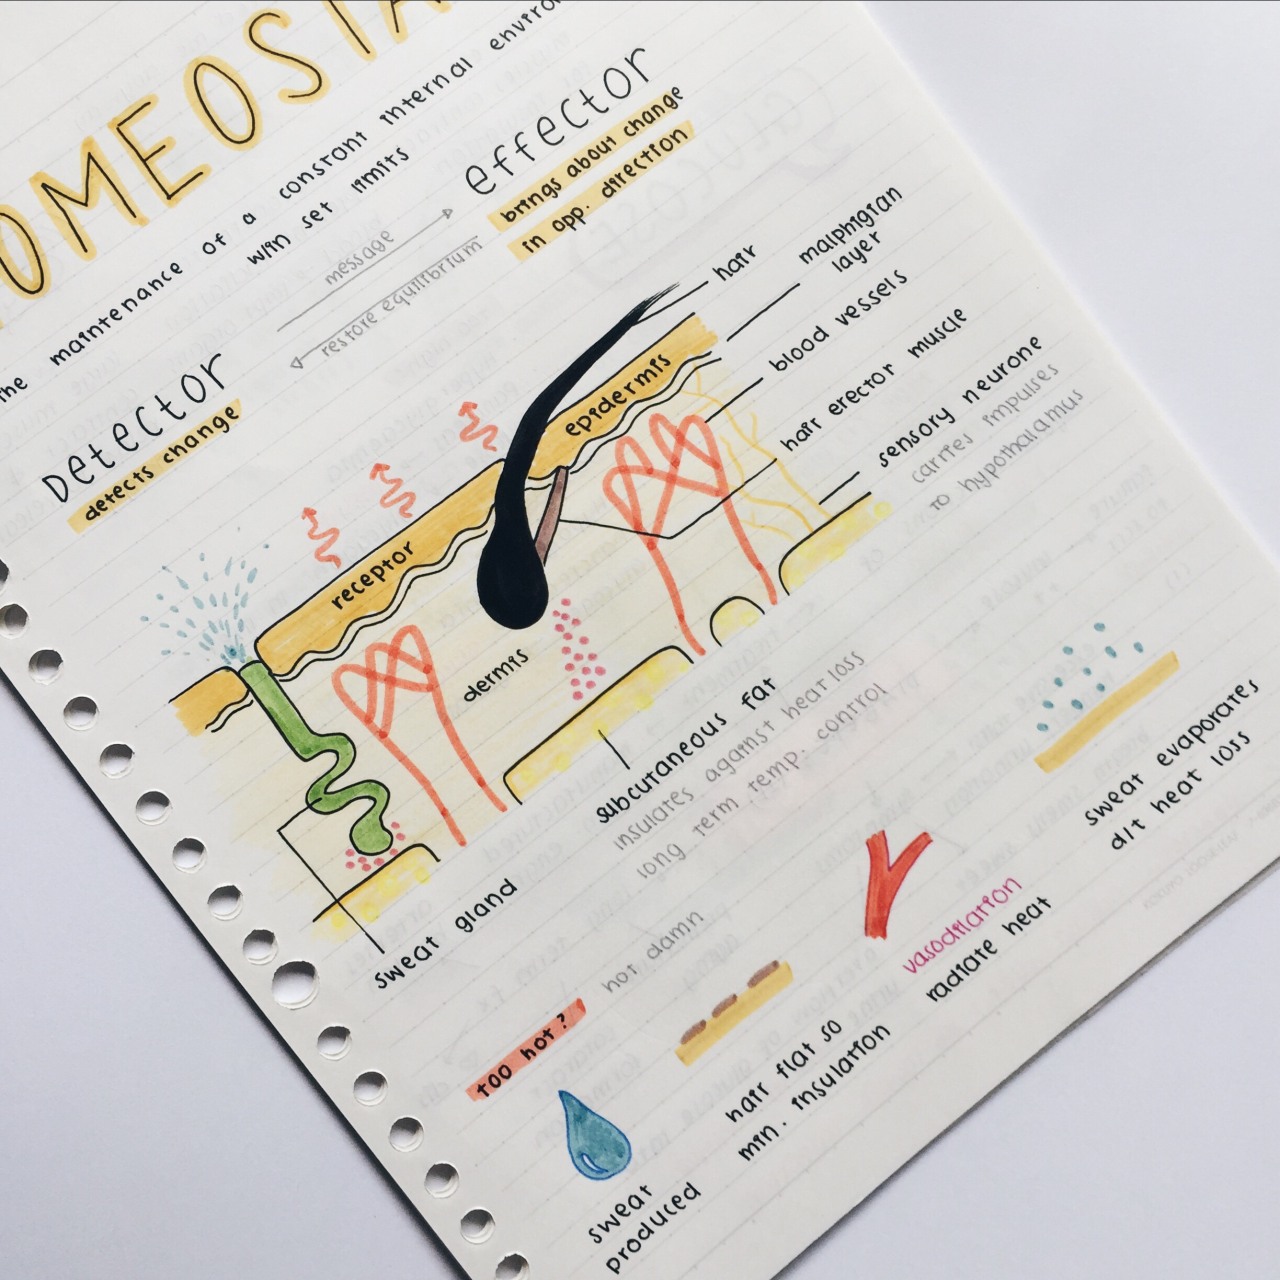 OMEOSTA
the maintenance of a constant internal enviro
w/in set limits
effector
brings about change
in opp. direction
message
restore equilibrium
Detector
detects change
hair
malphigian
layer
blood vessels
hair erector muscle
sensory neurone
carries impulses
to hypothalamus
epidermis
receptor
dermis
subcutaneous fat
insulates against heat loss
long term temp. control
sweat gland
too hot?
hot damn
sweat
produced
hair flat so
min. insulation
vasodilation
radiate heat
sweat evaporates
d/t heat loss